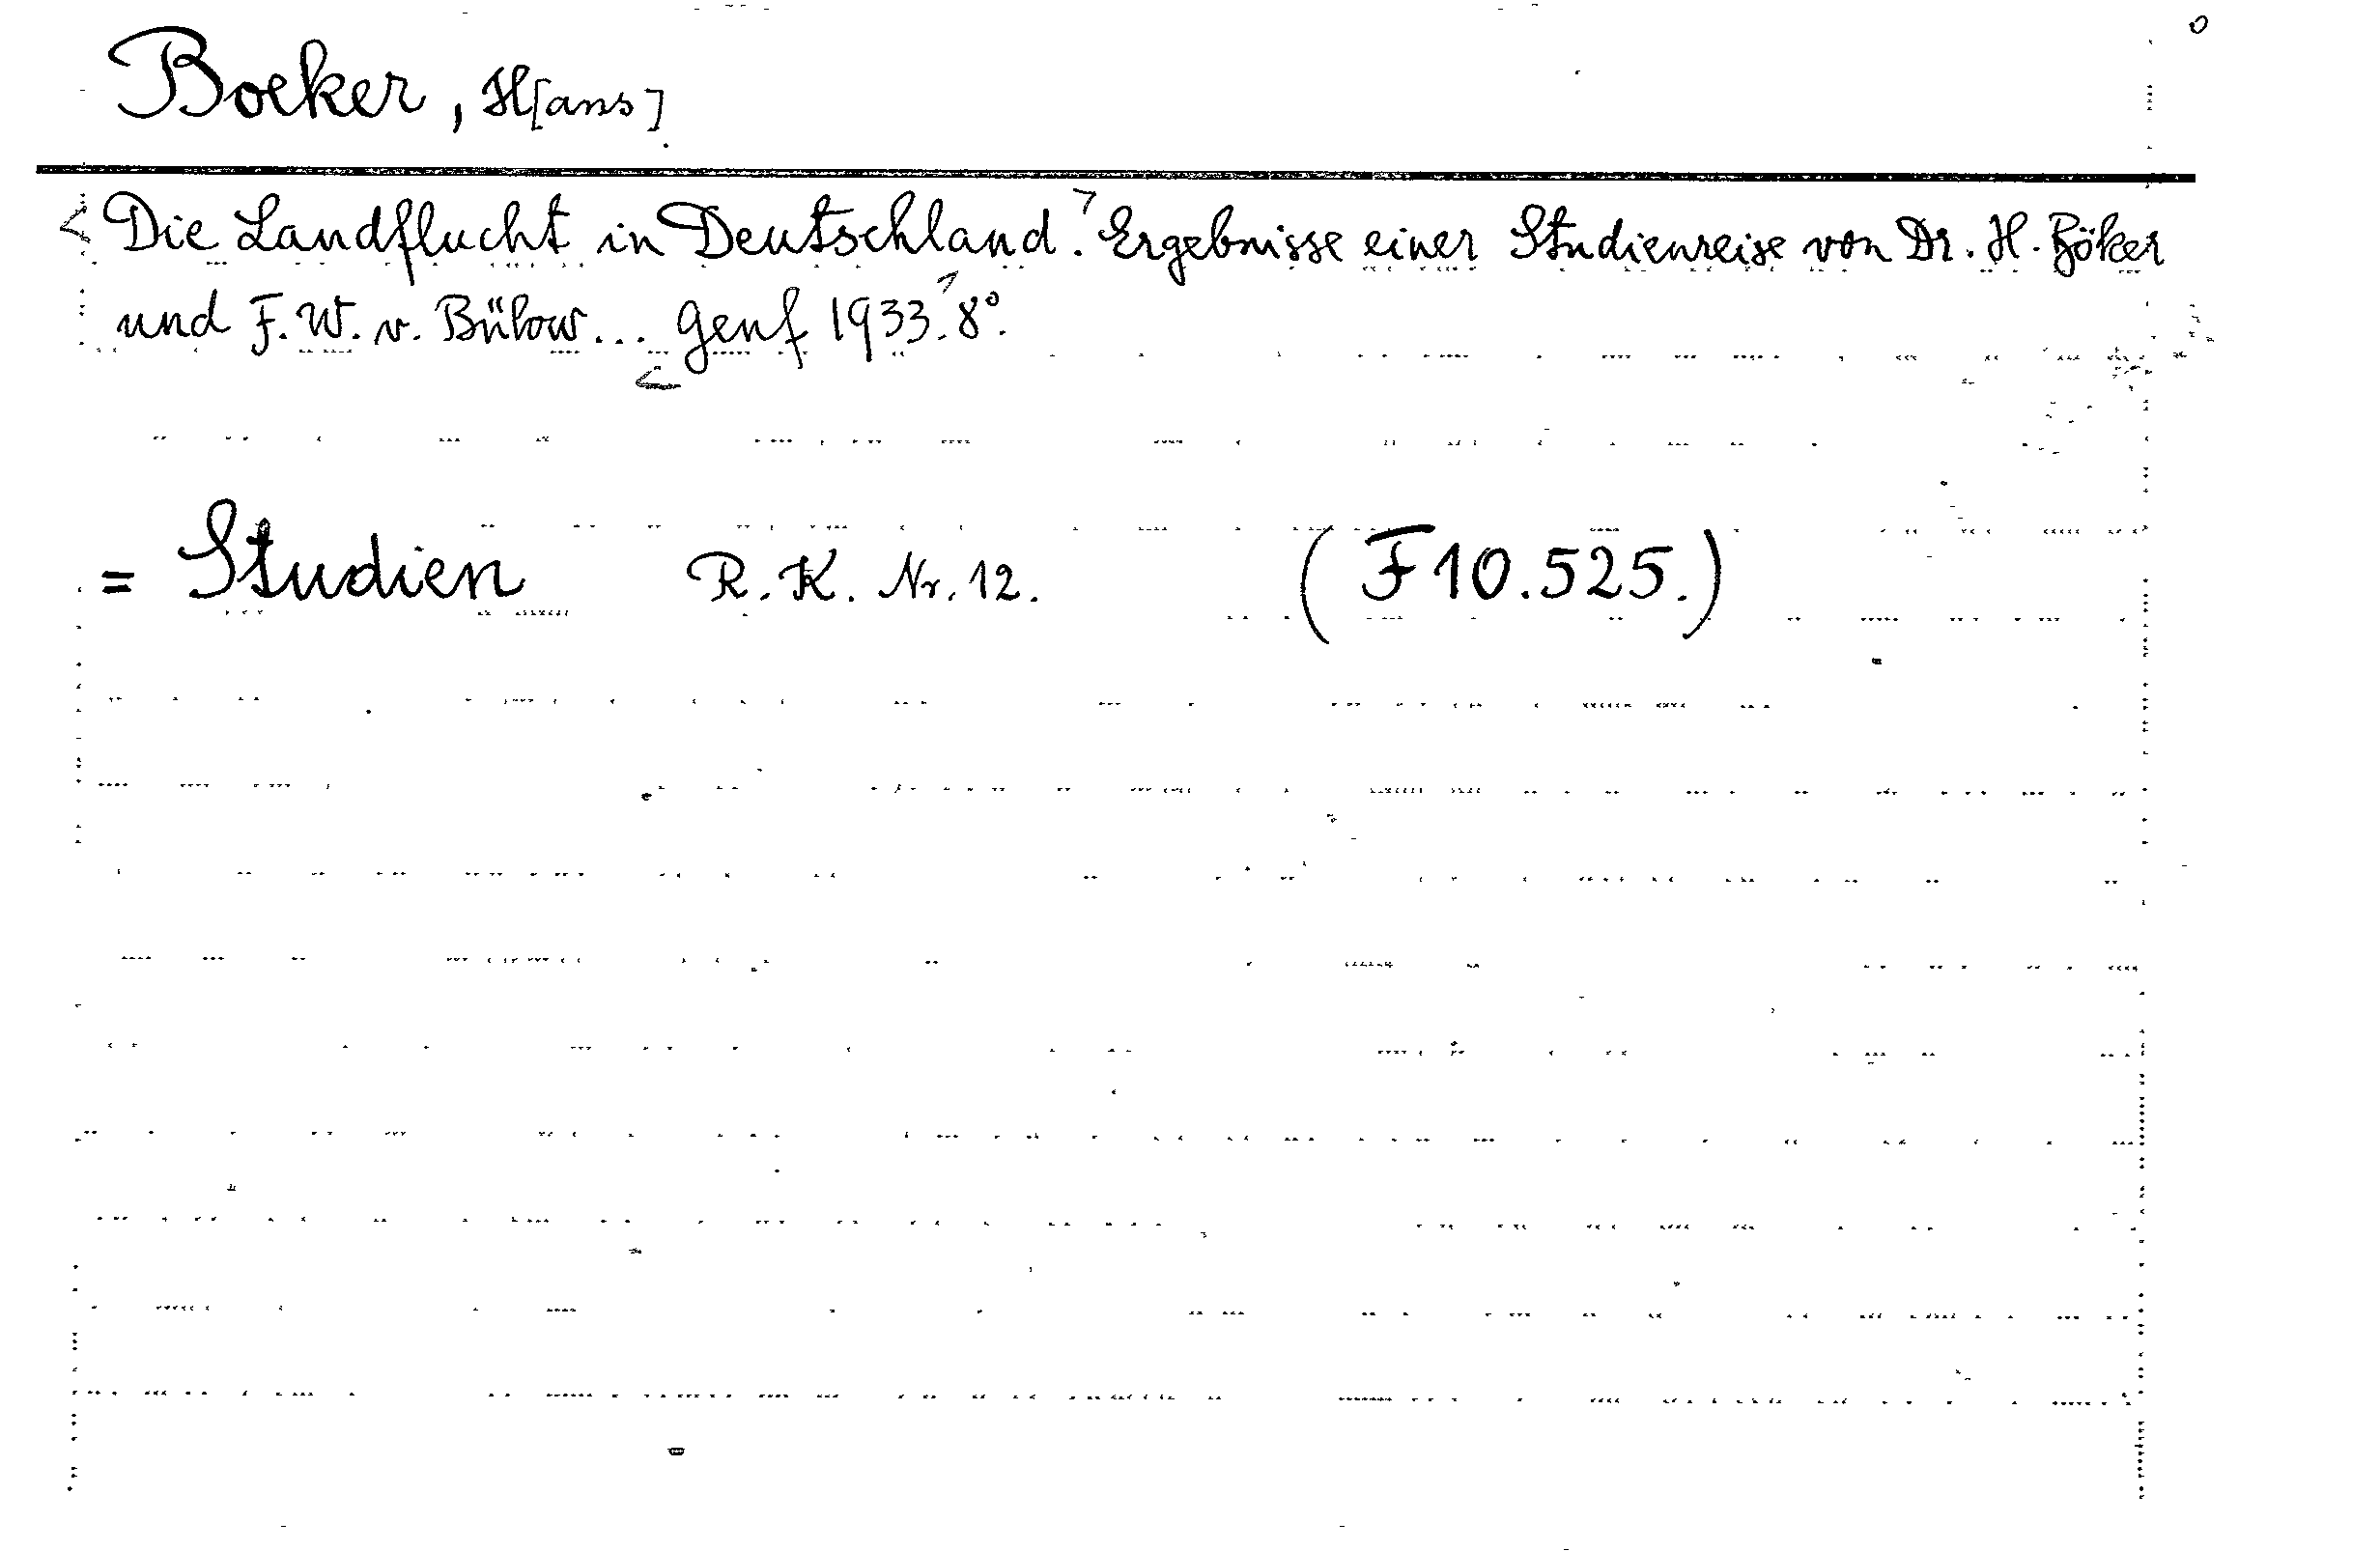 Boeker, H[ans]
<Die Landflucht in Deutschland.> Ergebnisse einer Studienreise von Dr. H. Böker
und F. W. v. Bülow... <Genf 1933.> 8°.
= Studien R. K. Nr. 12. (F 10.525.)